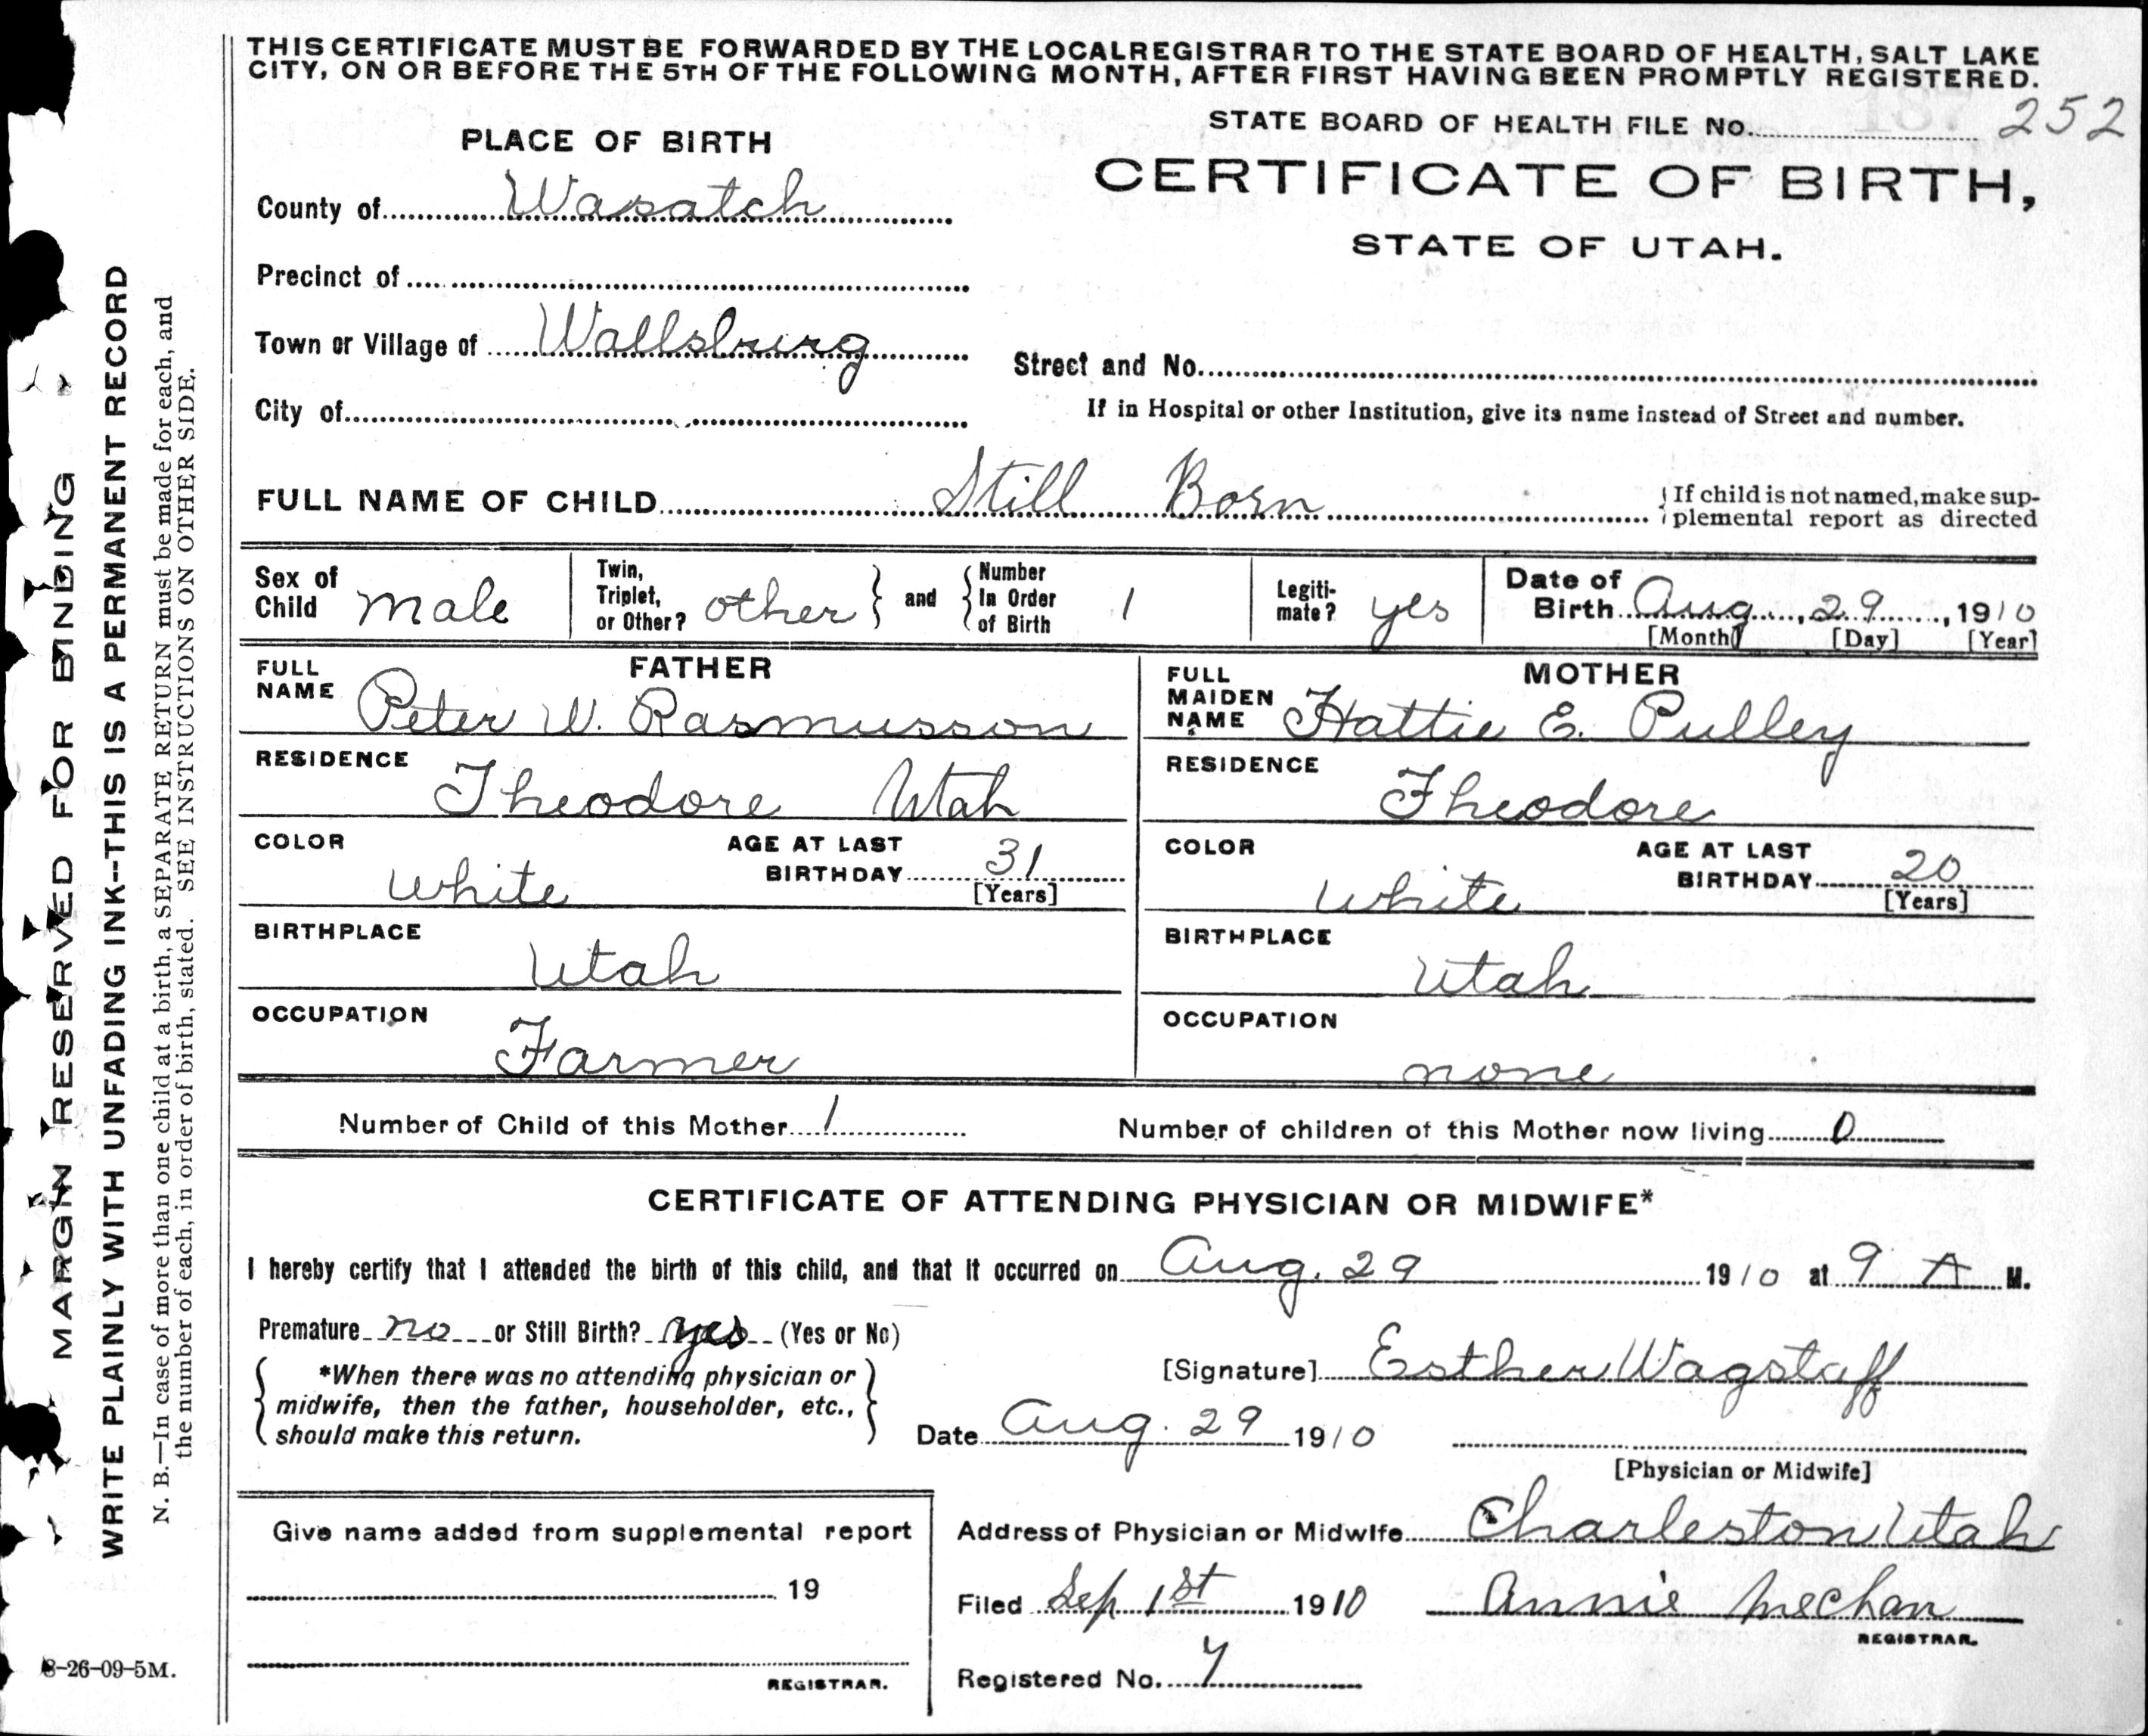 THIS CERTIFICATE MUST BE FORWARDED BY THE LOCAL REGISTRAR TO THE STATE BOARD OF HEALTH, SALT LAKE
CITY, ON OR BEFORE THE 5TH OF THE FOLLOWING MONTH, AFTER FIRST HAVING BEEN PROMPTLY REGISTERED.
STATE BOARD OF HEALTH FILE No. 252
PLACE OF BIRTH
CERTIFICATE OF BIRTH,
STATE OF UTAH.
County of Wasatch
Precinct of
Town or Village of Wallsburg
Street and No.
City of
If in Hospital or other Institution, give its name instead of Street and number.
FULL NAME OF CHILD Still Born
If child is not named, make sup-
plemental report as directed
Sex of
Child male
Twin,
Triplet,
or Other? other
and
Number
In Order
of Birth 1
Legiti-
mate? yes
Date of
Birth Aug, 29, 1910
[Month] [Day] [Year]
FATHER
FULL
NAME Peter W. Rasmusson
RESIDENCE
Theodore Utah
COLOR
white
AGE AT LAST
BIRTHDAY 31
[Years]
BIRTHPLACE
Utah
OCCUPATION
Farmer
MOTHER
FULL
MAIDEN
NAME Hattie E. Pulley
RESIDENCE
Theodore
COLOR
White
AGE AT LAST
BIRTHDAY 20
[Years]
BIRTHPLACE
Utah
OCCUPATION
none
Number of Child of this Mother 1
Number of children of this Mother now living 0
CERTIFICATE OF ATTENDING PHYSICIAN OR MIDWIFE*
I hereby certify that I attended the birth of this child, and that it occurred on Aug. 29 1910 at 9 A M.
Premature no or Still Birth? yes (Yes or No)
*When there was no attending physician or
midwife, then the father, householder, etc.,
should make this return.
[Signature] Esther Wagstaff
Date Aug. 29 1910
[Physician or Midwife]
Give name added from supplemental report
19
REGISTRAR.
Address of Physician or Midwife Charleston Utah
Filed Sep 1st 1910 Annie Mechan
REGISTRAR.
Registered No. 7
MARGIN RESERVED FOR BINDING
WRITE PLAINLY WITH UNFADING INK--THIS IS A PERMANENT RECORD
N. B.—In case of more than one child at a birth, a SEPARATE RETURN must be made for each, and
the number of each, in order of birth, stated. SEE INSTRUCTIONS ON OTHER SIDE.
8-26-09-5M.